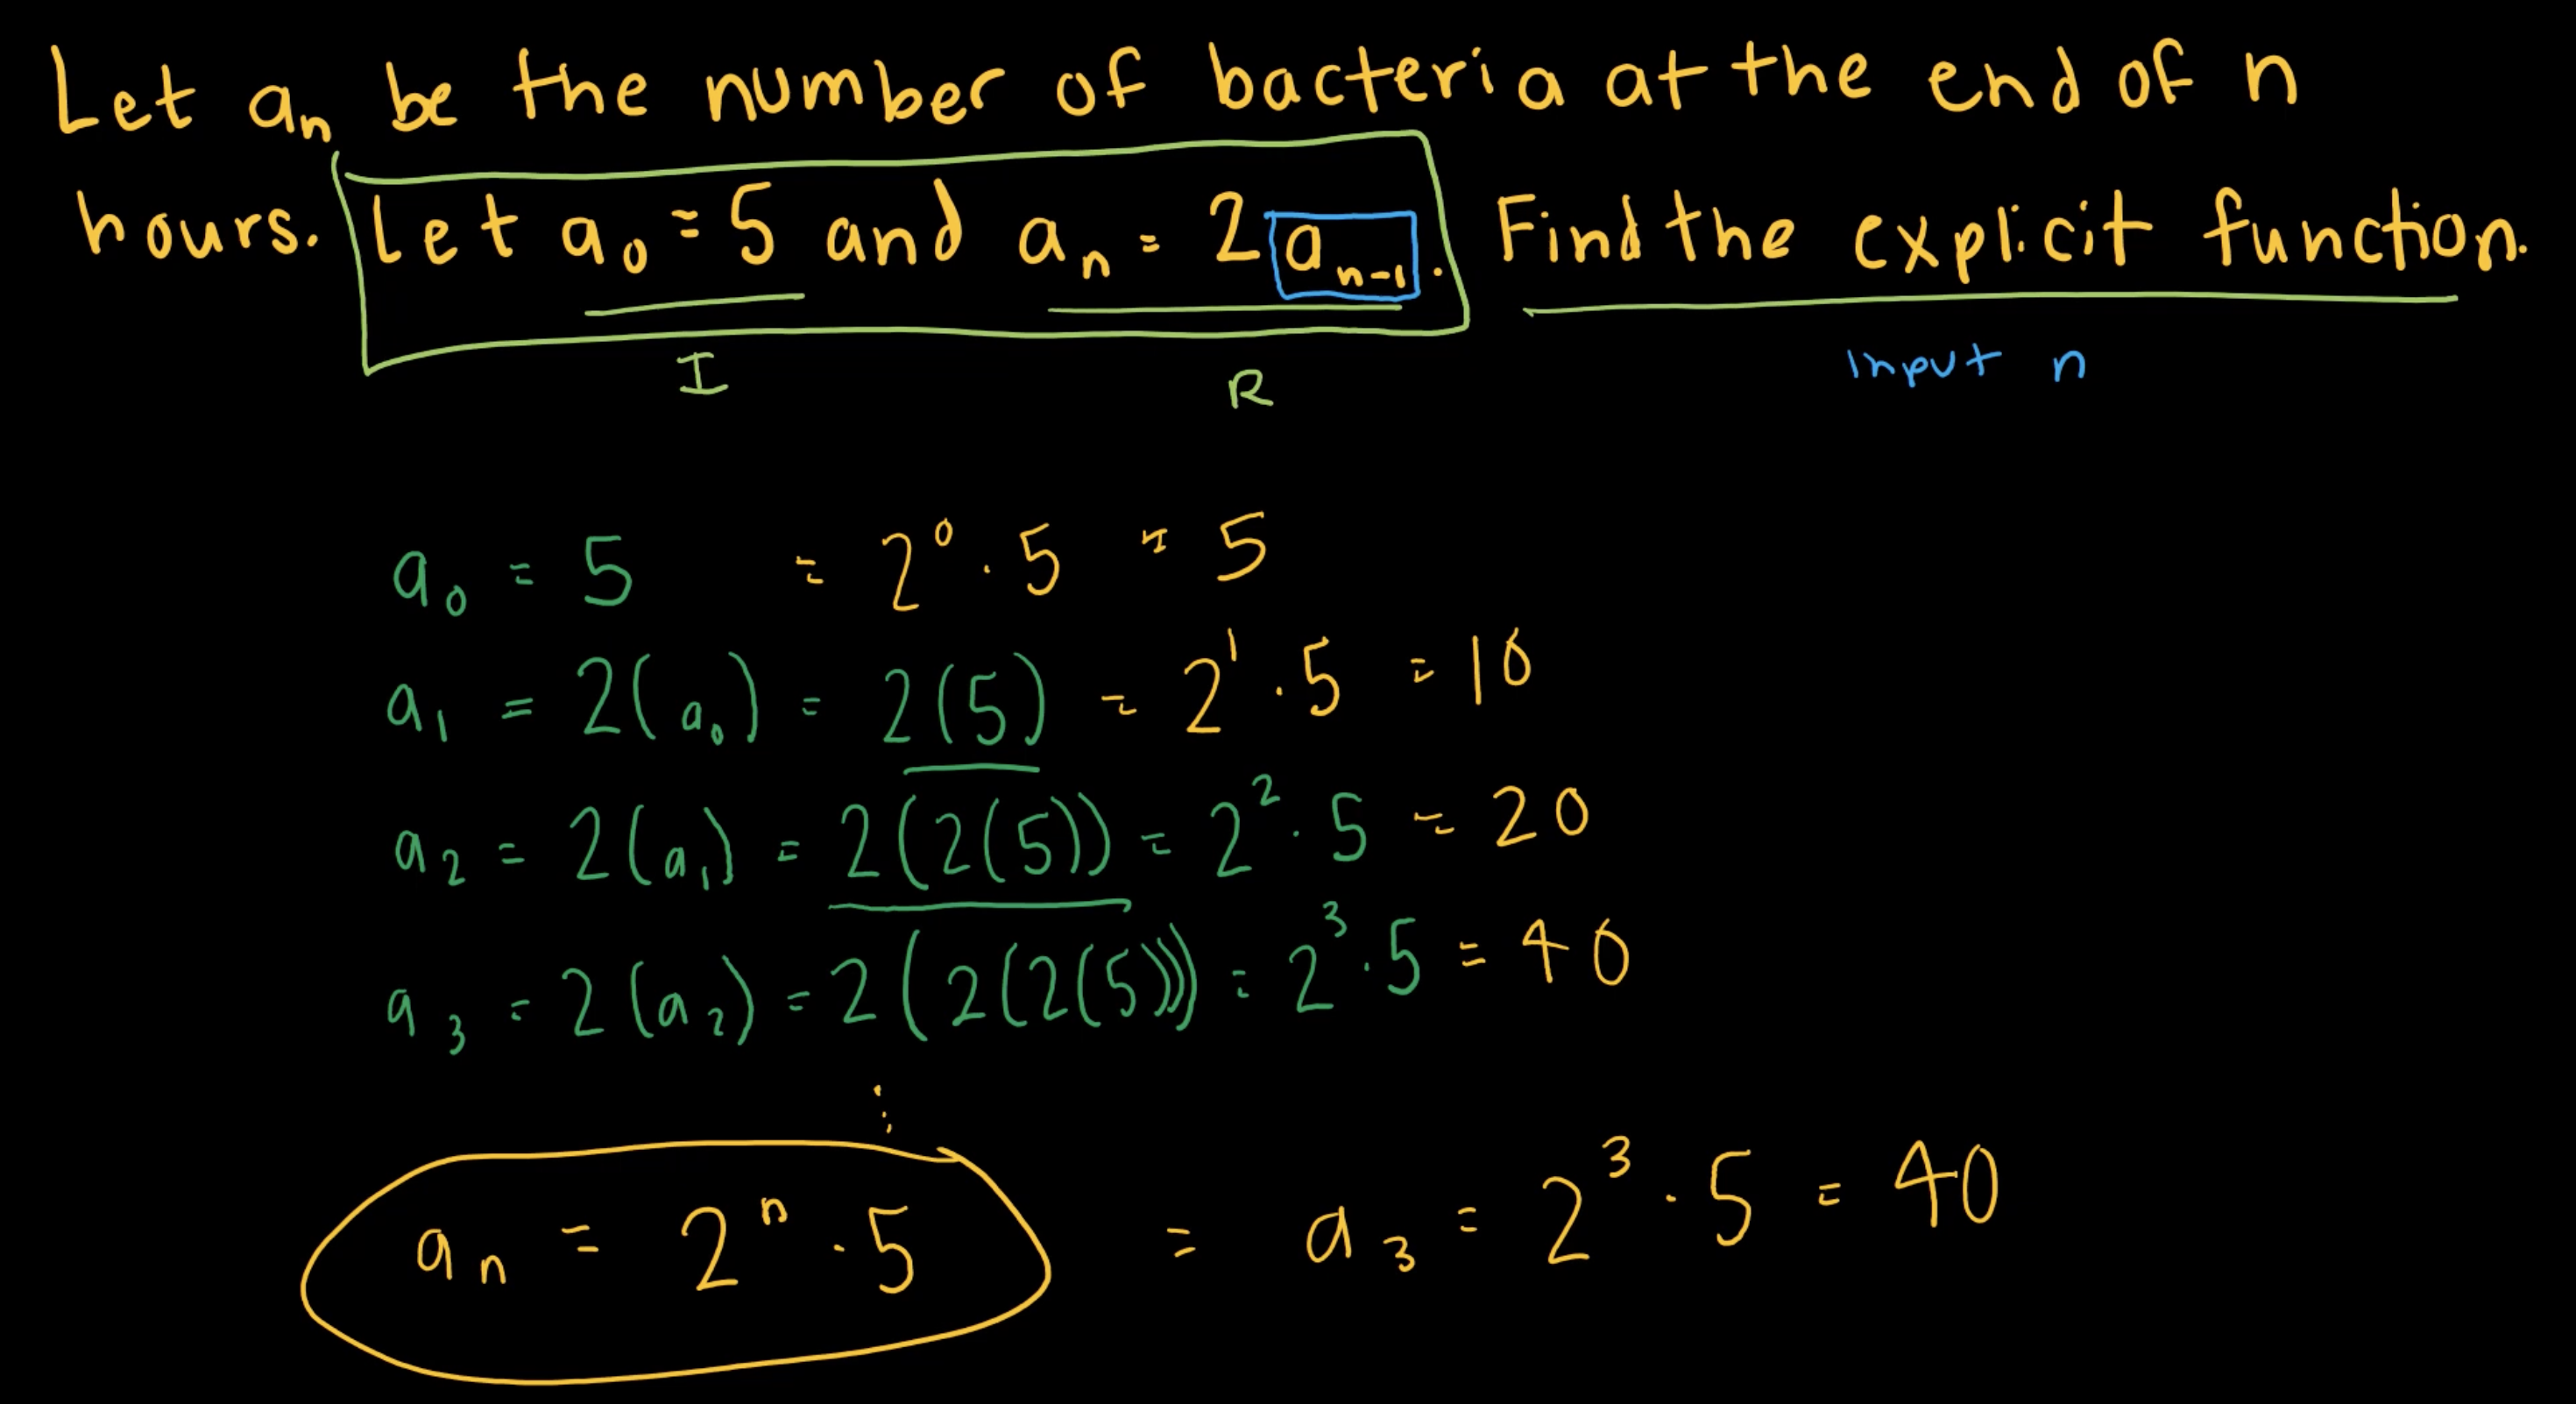 Let aₙ be the number of bacteria at the end of n
hours. Let a₀ = 5 and aₙ = 2aₙ₋₁. Find the explicit function.
I R Input n
a₀ = 5 = 2⁰ · 5 = 5
a₁ = 2(a₀) = 2(5) = 2¹ · 5 = 10
a₂ = 2(a₁) = 2(2(5)) = 2² · 5 = 20
a₃ = 2(a₂) = 2(2(2(5))) = 2³ · 5 = 40
⋮
aₙ = 2ⁿ · 5 = a₃ = 2³ · 5 = 40